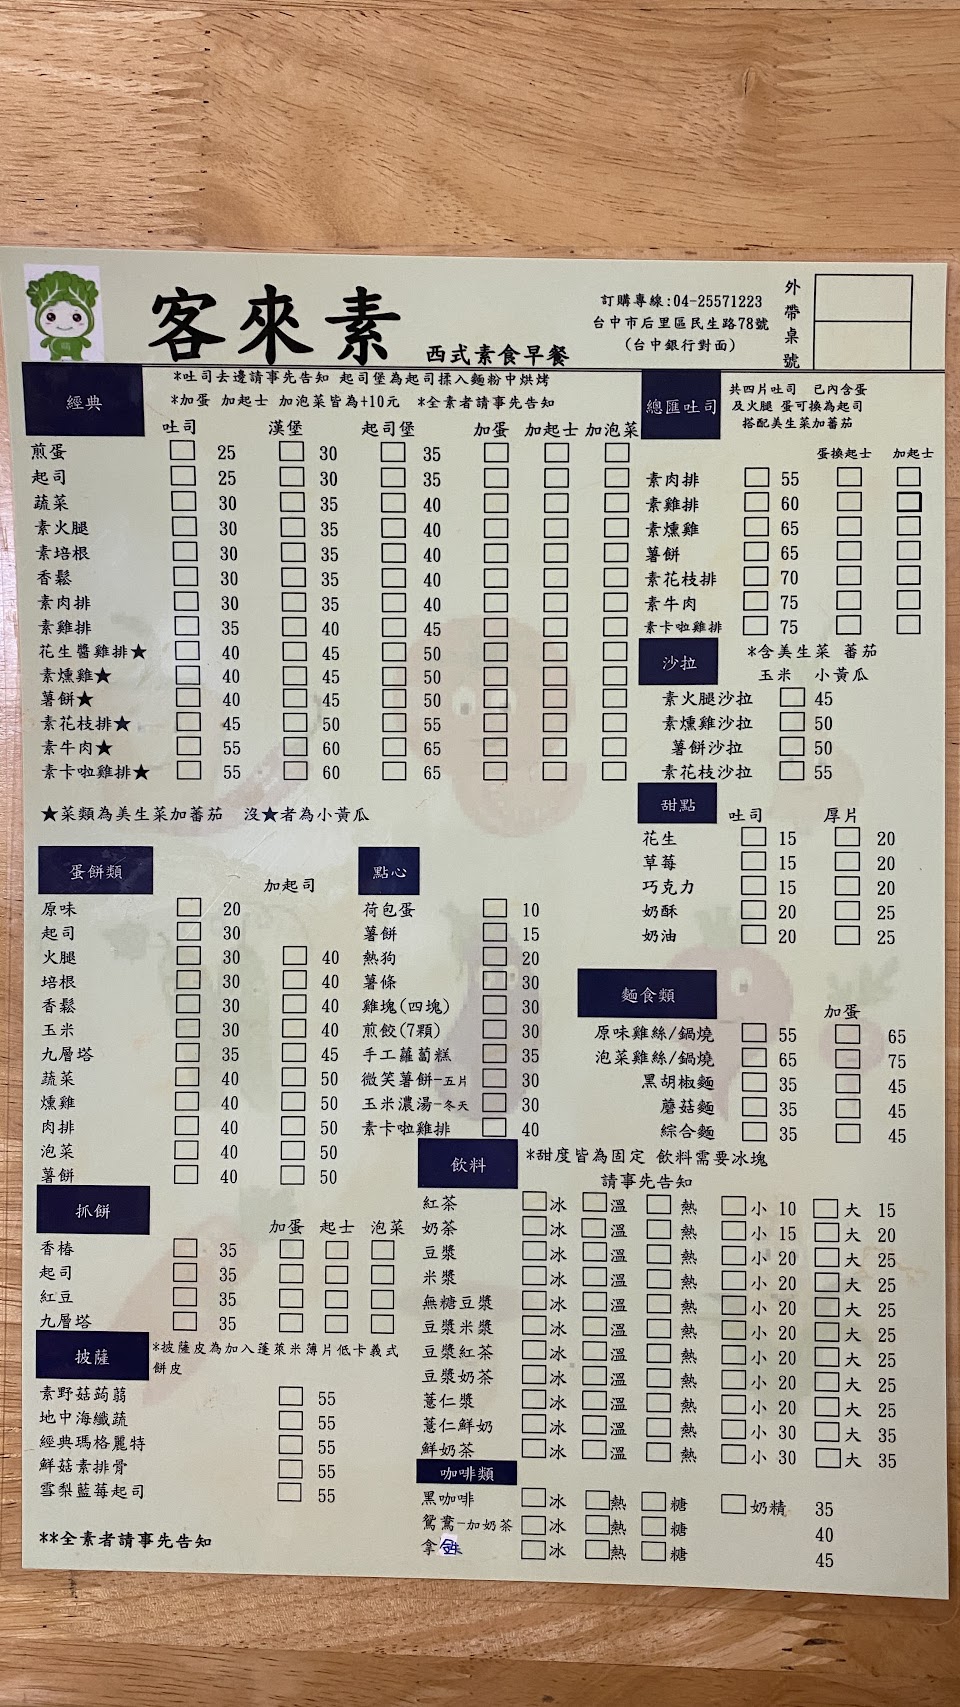 客來素
西式素食早餐
訂購專線:04-25571223
台中市后里區民生路78號
(台中銀行對面)
外帶桌號
經典
*吐司去邊請事先告知 起司堡為起司揉入麵粉中烘烤
*加蛋 加起士 加泡菜皆為+10元 *全素者請事先告知
吐司 漢堡 起司堡 加蛋 加起士 加泡菜
煎蛋 25 30 35
起司 25 30 35
蔬菜 30 35 40
素火腿 30 35 40
素培根 30 35 40
香鬆 30 35 40
素肉排 30 35 40
素雞排 35 40 45
花生醬雞排★ 40 45 50
素燻雞★ 40 45 50
薯餅★ 40 45 50
素花枝排★ 45 50 55
素牛肉★ 55 60 65
素卡啦雞排★ 55 60 65
★菜類為美生菜加蕃茄 沒★者為小黃瓜
總匯吐司
共四片吐司 已內含蛋
及火腿 蛋可換為起司
搭配美生菜加蕃茄
蛋換起士 加起士
素肉排 55
素雞排 60
素燻雞 65
薯餅 65
素花枝排 70
素牛肉 75
素卡啦雞排 75
沙拉
*含美生菜 蕃茄
玉米 小黃瓜
素火腿沙拉 45
素燻雞沙拉 50
薯餅沙拉 50
素花枝沙拉 55
甜點
吐司 厚片
花生 15 20
草莓 15 20
巧克力 15 20
奶酥 20 25
奶油 20 25
蛋餅類
加起司
原味 20
起司 30
火腿 30 40
培根 30 40
香鬆 30 40
玉米 30 40
九層塔 35 45
蔬菜 40 50
燻雞 40 50
肉排 40 50
泡菜 40 50
薯餅 40 50
點心
荷包蛋 10
薯餅 15
熱狗 20
薯條 30
雞塊(四塊) 30
煎餃(7顆) 30
手工蘿蔔糕 35
微笑薯餅-五片 30
玉米濃湯-冬天 30
素卡啦雞排 40
麵食類
加蛋
原味雞絲/鍋燒 55 65
泡菜雞絲/鍋燒 65 75
黑胡椒麵 35 45
蘑菇麵 35 45
綜合麵 35 45
抓餅
加蛋 起士 泡菜
香椿 35
起司 35
紅豆 35
九層塔 35
披薩
*披薩皮為加入蓬萊米薄片低卡義式
餅皮
素野菇蒟蒻 55
地中海纖蔬 55
經典瑪格麗特 55
鮮菇素排骨 55
雪梨藍莓起司 55
**全素者請事先告知
飲料
*甜度皆為固定 飲料需要冰塊
請事先告知
紅茶 冰 溫 熱 小 10 大 15
奶茶 冰 溫 熱 小 15 大 20
豆漿 冰 溫 熱 小 20 大 25
米漿 冰 溫 熱 小 20 大 25
無糖豆漿 冰 溫 熱 小 20 大 25
豆漿米漿 冰 溫 熱 小 20 大 25
豆漿紅茶 冰 溫 熱 小 20 大 25
豆漿奶茶 冰 溫 熱 小 20 大 25
薏仁漿 冰 溫 熱 小 20 大 25
薏仁鮮奶 冰 溫 熱 小 30 大 35
鮮奶茶 冰 溫 熱 小 30 大 35
咖啡類
黑咖啡 冰 熱 糖 奶精 35
鴛鴦-加奶茶 冰 熱 糖 40
拿鐵 冰 熱 糖 45